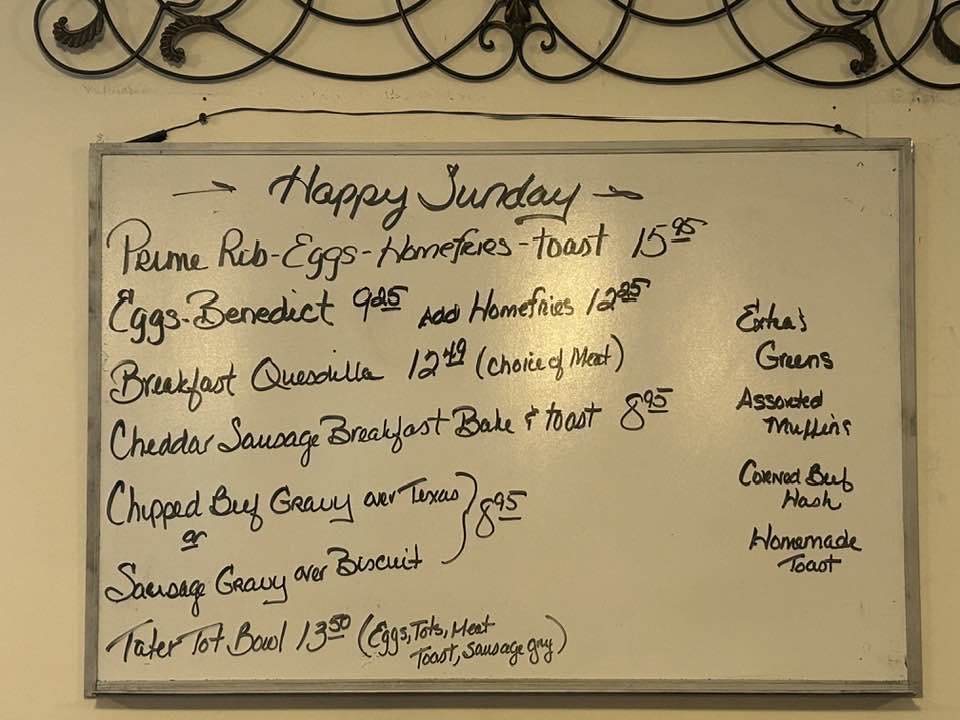 → Happy Sunday →
Prime Rib-Eggs-Homefries-toast 15 95
Eggs-Benedict 9 25 Add Homefries 12 25
Breakfast Quesdilla 12 49 (Choice of Meat)
Cheddar Sausage Breakfast Bake & toast 8 95
Chipped Beef Gravy over Texas } 8 95
or
Sausage Gravy over Biscuit
Tater Tot Bowl 13 50 (Eggs, Tots, Meat
Toast, Sausage gvy)
Extra's
Greens
Assorted
Muffins
Corned Beef
Hash
Homemade
Toast